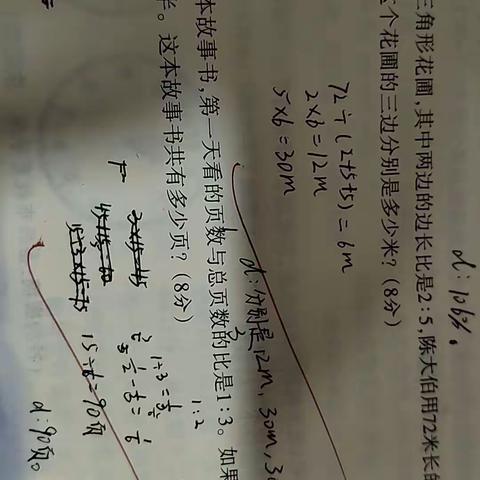 d:106%。
三角形花圃,其中两边的边长比是2:5,陈大伯用72米长的
个花圃的三边分别是多少米?(8分)
72÷(2+5+5)=6m
2×6=12m
5×6=30m
d:分别是12m,30m,30
本故事书,第一天看的页数与总页数的比是1:3。如果
1:2
。这本故事书共有多少页?(8分)
1+3=
1/2-1/3=1/6
15÷1/6=90页
d:90页。